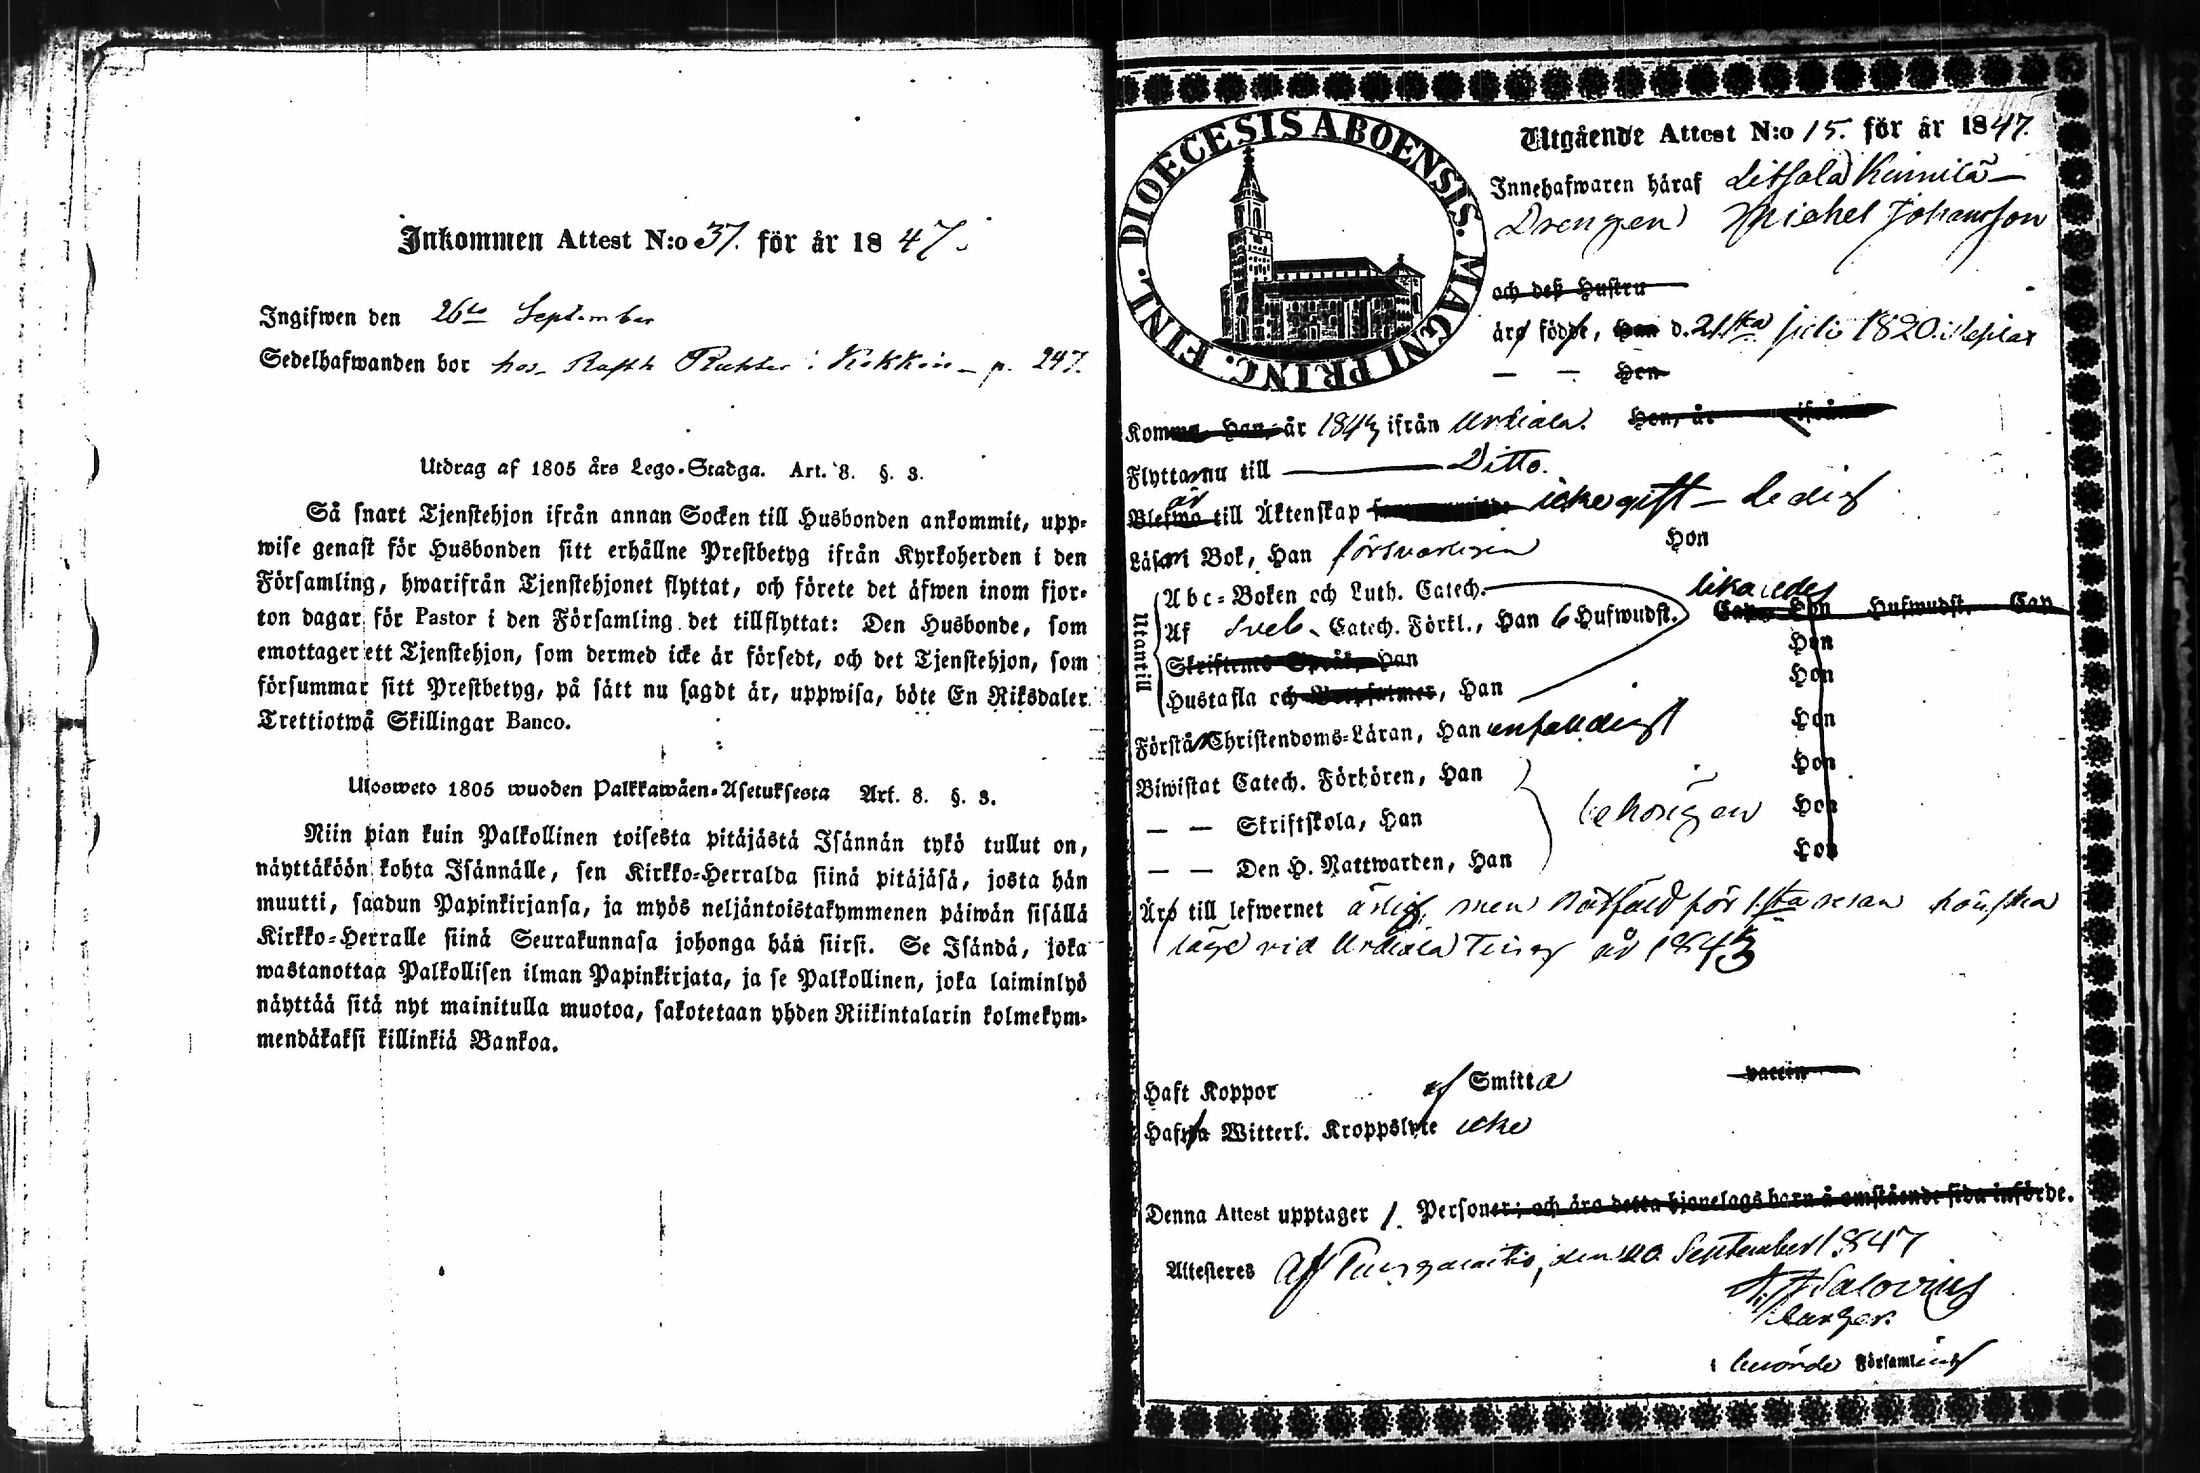 Inkommen Attest N:o 37. för år 1847.
Ingifwen den 26te September
Sedelhafwanden bor hos Rusth i p. 247.
Utdrag af 1805 års Lego-Stadga. Art. 8. §. 3.
Så snart Tjenstehjon ifrån annan Socken till Husbonden ankommit, upp-
wise genast för Husbonden sitt erhållne Prestbetyg ifrån Kyrkoherden i den
Församling, hwarifrån Tjenstehjonet flyttat, och förete det äfwen inom fjor-
ton dagar för Pastor i den Församling det tillflyttat: Den Husbonde, som
emottager ett Tjenstehjon, som dermed icke är försedt, och det Tjenstehjon, som
försummar sitt Prestbetyg, på sätt nu sagdt är, uppwisa, böte En Riksdaler
Trettiotwå Skillingar Banco.
Ulosweto 1805 wuoden Palkkawäen-Asetuksesta Art. 8. §. 3.
Niin pian kuin Palkollinen toisesta pitäjästä Isännän tykö tullut on,
näyttäköön kohta Isännälle, sen Kirkko-Herralda siinä pitäjäsä, josta hän
muutti, saadun Papinkirjansa, ja myös neljäntoistakymmenen päiwän sisällä
Kirkko-Herralle siinä Seurakunnasa johonga hän siirsi. Se Isändä, joka
wastanottaa Palkollisen ilman Papinkirjata, ja se Palkollinen, joka laiminlyö
näyttää sitä nyt mainitulla muotoa, sakotetaan yhden Riikintalarin kolmekym-
mendäkaksi killinkiä Bankoa.
DIOECESIS ABOENSIS. MAGNI PRINC. FINL.
Utgående Attest N:o 15. för år 1847.
Innehafwaren häraf
Drengen Michel Johansson
och deß Hustru
äro födde, Han d. 21sta Juli 1820.
— — Hon
Komma Han, år 1843 ifrån Urdiala. Hon, år ifrån
Flytta nu till Ditto.
Blefwo till Äktenskap är icke gift – ledig
Läsa i Bok, Han försvarligen Hon
Utantill
Abc-Boken och Luth. Catech.
Af Sveb. Catech. Förkl., Han 6 Hufwudst. likaledes Cap. Hon Hufwudst. Cap
Skriftens Språk, Han Hon
Hustafla och Botpsalmer, Han Hon
Förstå Christendoms-Läran, Han enfalldigt Hon
Biwistat Catech. Förhören, Han Hon
— — Skriftskola, Han behörigen Hon
— — Den H. Nattwarden, Han Hon
Äro till lefwernet ärlig, men sakfäld för 1sta resan
läge vid Urdiala Ting år 1843
Haft Koppor af Smitta vaccin
Hafwa Witterl. Kroppslyte icke
Denna Attest upptager 1. Personer; och äro detta hjonelags barn å omstående sida införde.
Attesteres af Pungalaitio, den 20 September 1847
Salovius
i Församling